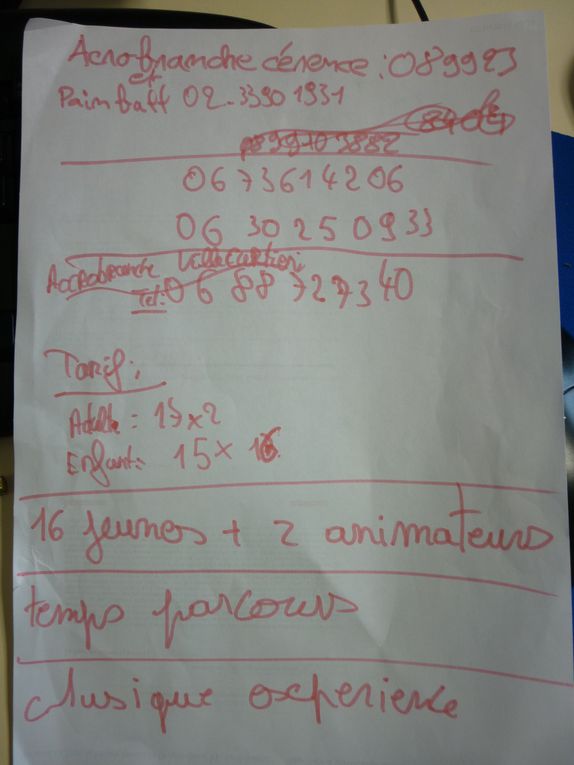 Acrobranche cérence : 089923
et
Paintball 02-33901931
0673614206
06 30 25 09 33
Accrobranche
Tel: 06 88 72 73 40
Tarif :
Adulte = 15x2
Enfant = 15x 16
16 jeunes + 2 animateurs
temps parcours
clusique experience